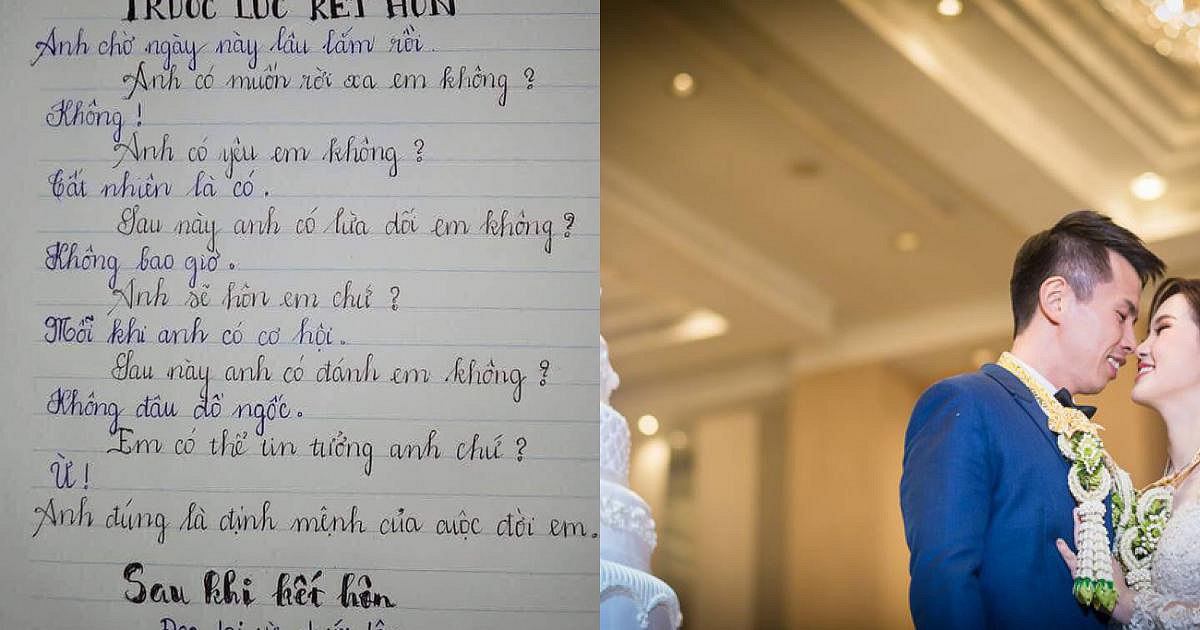 TRƯỚC LÚC KẾT HÔN
Anh chờ ngày này lâu lắm rồi.
Anh có muốn rời xa em không ?
Không !
Anh có yêu em không ?
Tất nhiên là có.
Sau này anh có lừa dối em không ?
Không bao giờ.
Anh sẽ hôn em chứ ?
Mỗi khi anh có cơ hội.
Sau này anh có đánh em không ?
Không đâu đồ ngốc.
Em có thể tin tưởng anh chứ ?
Ừ !
Anh đúng là định mệnh của cuộc đời em.
Sau khi kết hôn